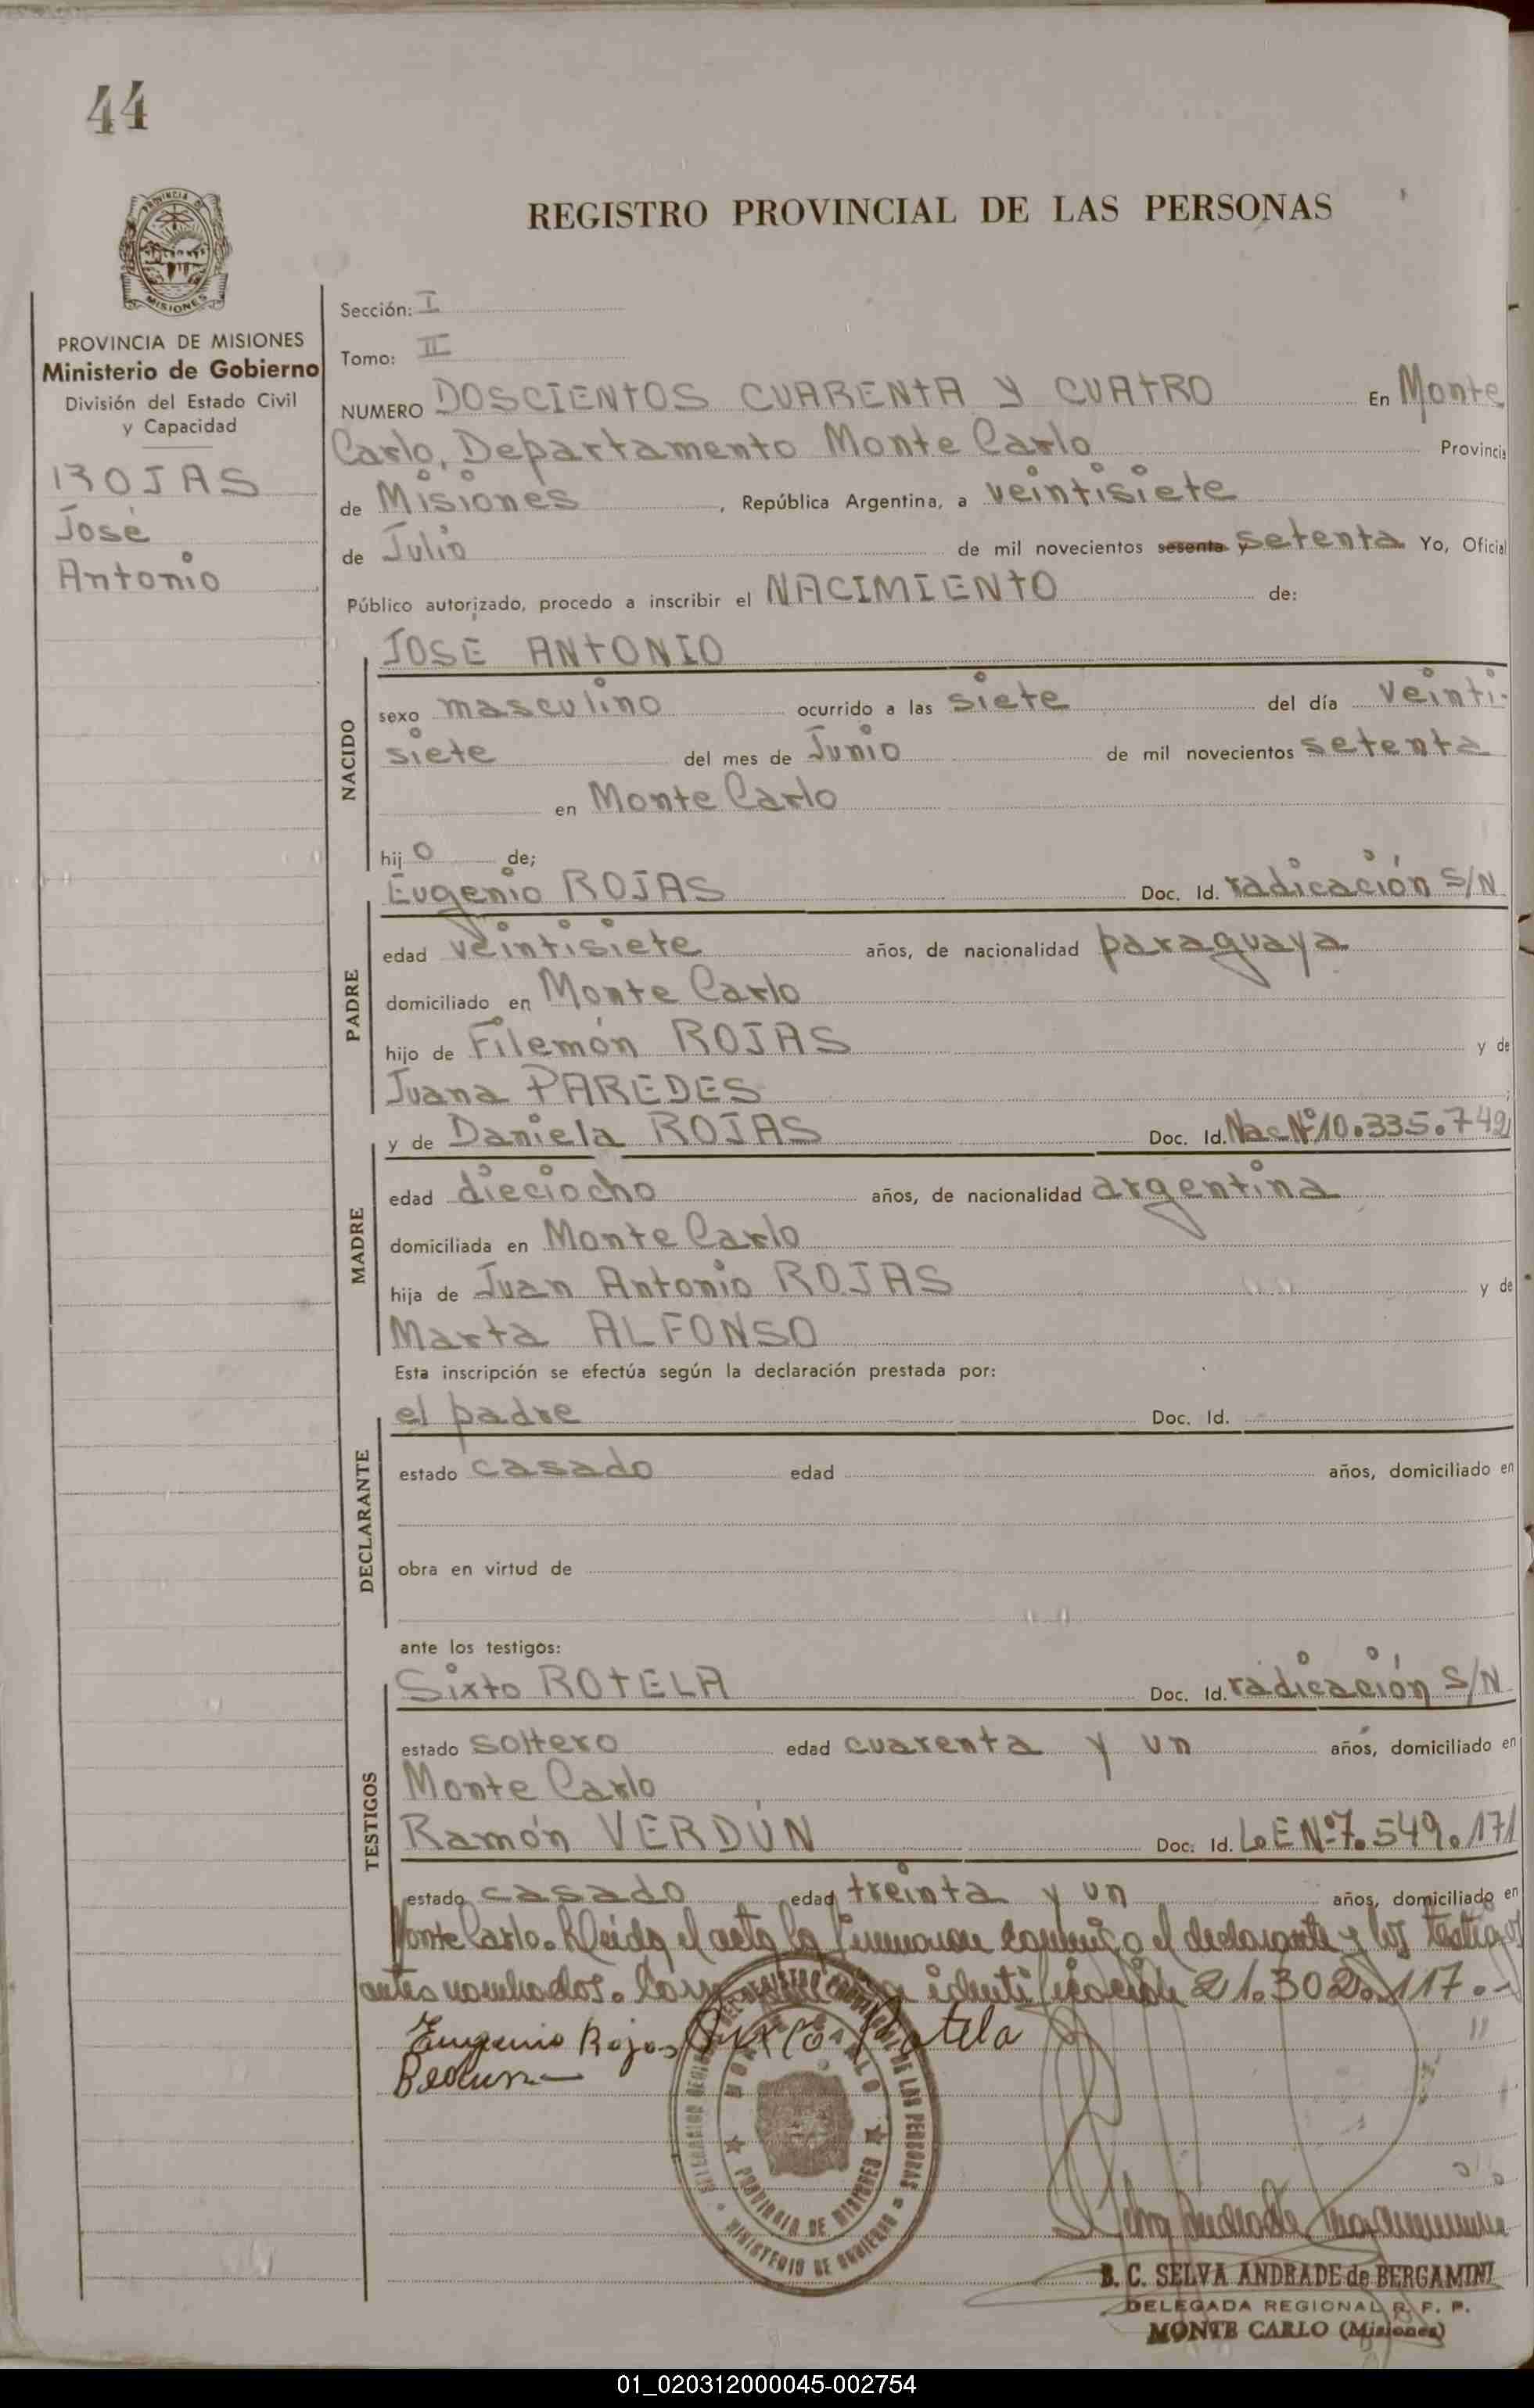 44
PROVINCIA DE MISIONES
REGISTRO PROVINCIAL DE LAS PERSONAS
PROVINCIA DE MISIONES
Ministerio de Gobierno
División del Estado Civil
y Capacidad
ROJAS
José
Antonio
Sección: I
Tomo: II
NUMERO DOSCIENTOS CUARENTA Y CUATRO En Monte
Carlo, Departamento Monte Carlo Provincia
de Misiones, República Argentina, a veintisiete
de Julio de mil novecientos sesenta y setenta Yo, Oficial
Público autorizado, procedo a inscribir el NACIMIENTO de:
NACIDO
JOSÉ ANTONIO
sexo masculino ocurrido a las siete del día veinti-
siete del mes de Junio de mil novecientos setenta
en Monte Carlo
hijo de;
PADRE
Eugenio ROJAS Doc. Id. radicación S/N
edad veintisiete años, de nacionalidad paraguaya
domiciliado en Monte Carlo
hijo de Filemón ROJAS y de
Juana PAREDES
MADRE
y de Daniela ROJAS Doc. Id. Nac Nº 10.335.742
edad dieciocho años, de nacionalidad argentina
domiciliada en Monte Carlo
hija de Juan Antonio ROJAS y de
Marta ALFONSO
Esta inscripción se efectúa según la declaración prestada por:
DECLARANTE
el padre Doc. Id.
estado casado edad años, domiciliado en
obra en virtud de
ante los testigos:
TESTIGOS
Sixto ROTELA Doc. Id. radicación S/N
estado soltero edad cuarenta y un años, domiciliado en
Monte Carlo
Ramón VERDÚN Doc. Id. L.E Nº 7.549.171
estado casado edad treinta y un años, domiciliado en
Monte Carlo. Leída el acta la firmaron conmigo el declarante y los testigos
antes nombados. identificación 21.302.117.-
Eugenio Rojas Sixto Rotela
MONTE CARLO
PROVINCIA DE MISIONES
MINISTERIO DE GOBIERNO
B. C. SELVA ANDRADE de BERGAMINI
DELEGADA REGIONAL R. P. P.
MONTE CARLO (Misiones)
01_020312000045-002754